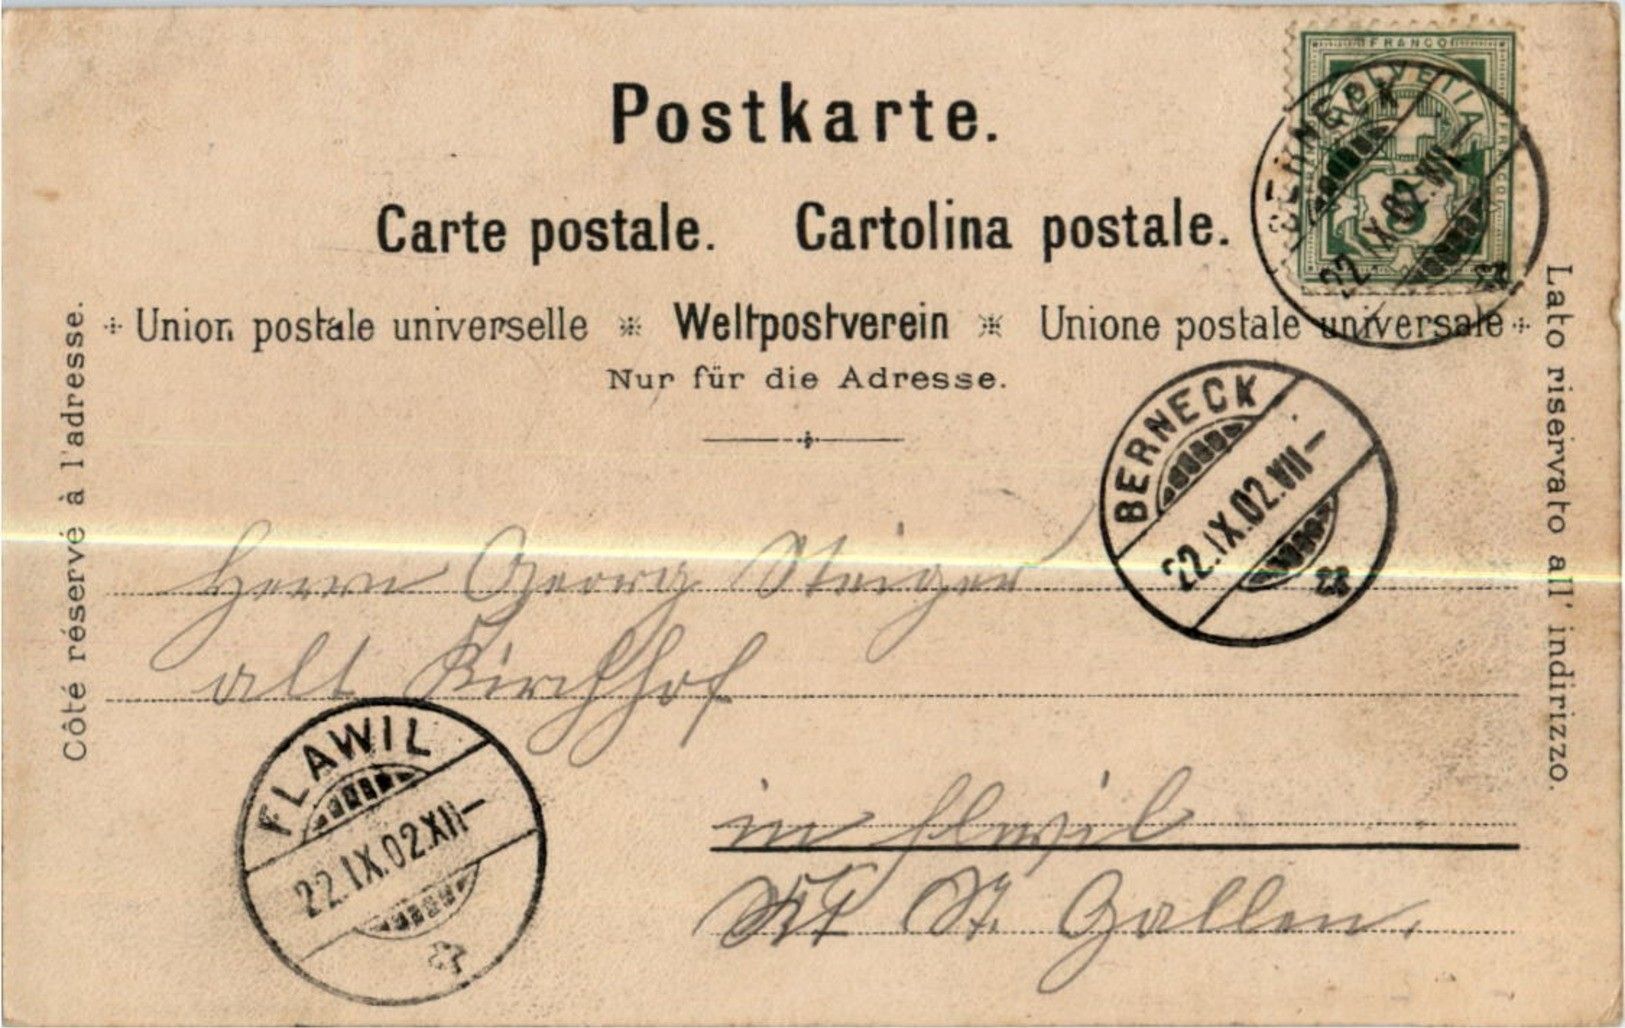 Postkarte.
Carte postale. Cartolina postale.
Union postale universelle Weltpostverein Unione postale universale
Nur für die Adresse.
Côté réservé à l'adresse.
Lato riservato all' indirizzo.
FRANCO
HELVETIA
5
BERNECK
22.IX.02.VII–
BERNECK
22.IX.02.VII–
Herrn Georg Steiger
alt Kirchhof
FLAWIL
22.IX.02.XII–
in Flawil
Kt St. Gallen.